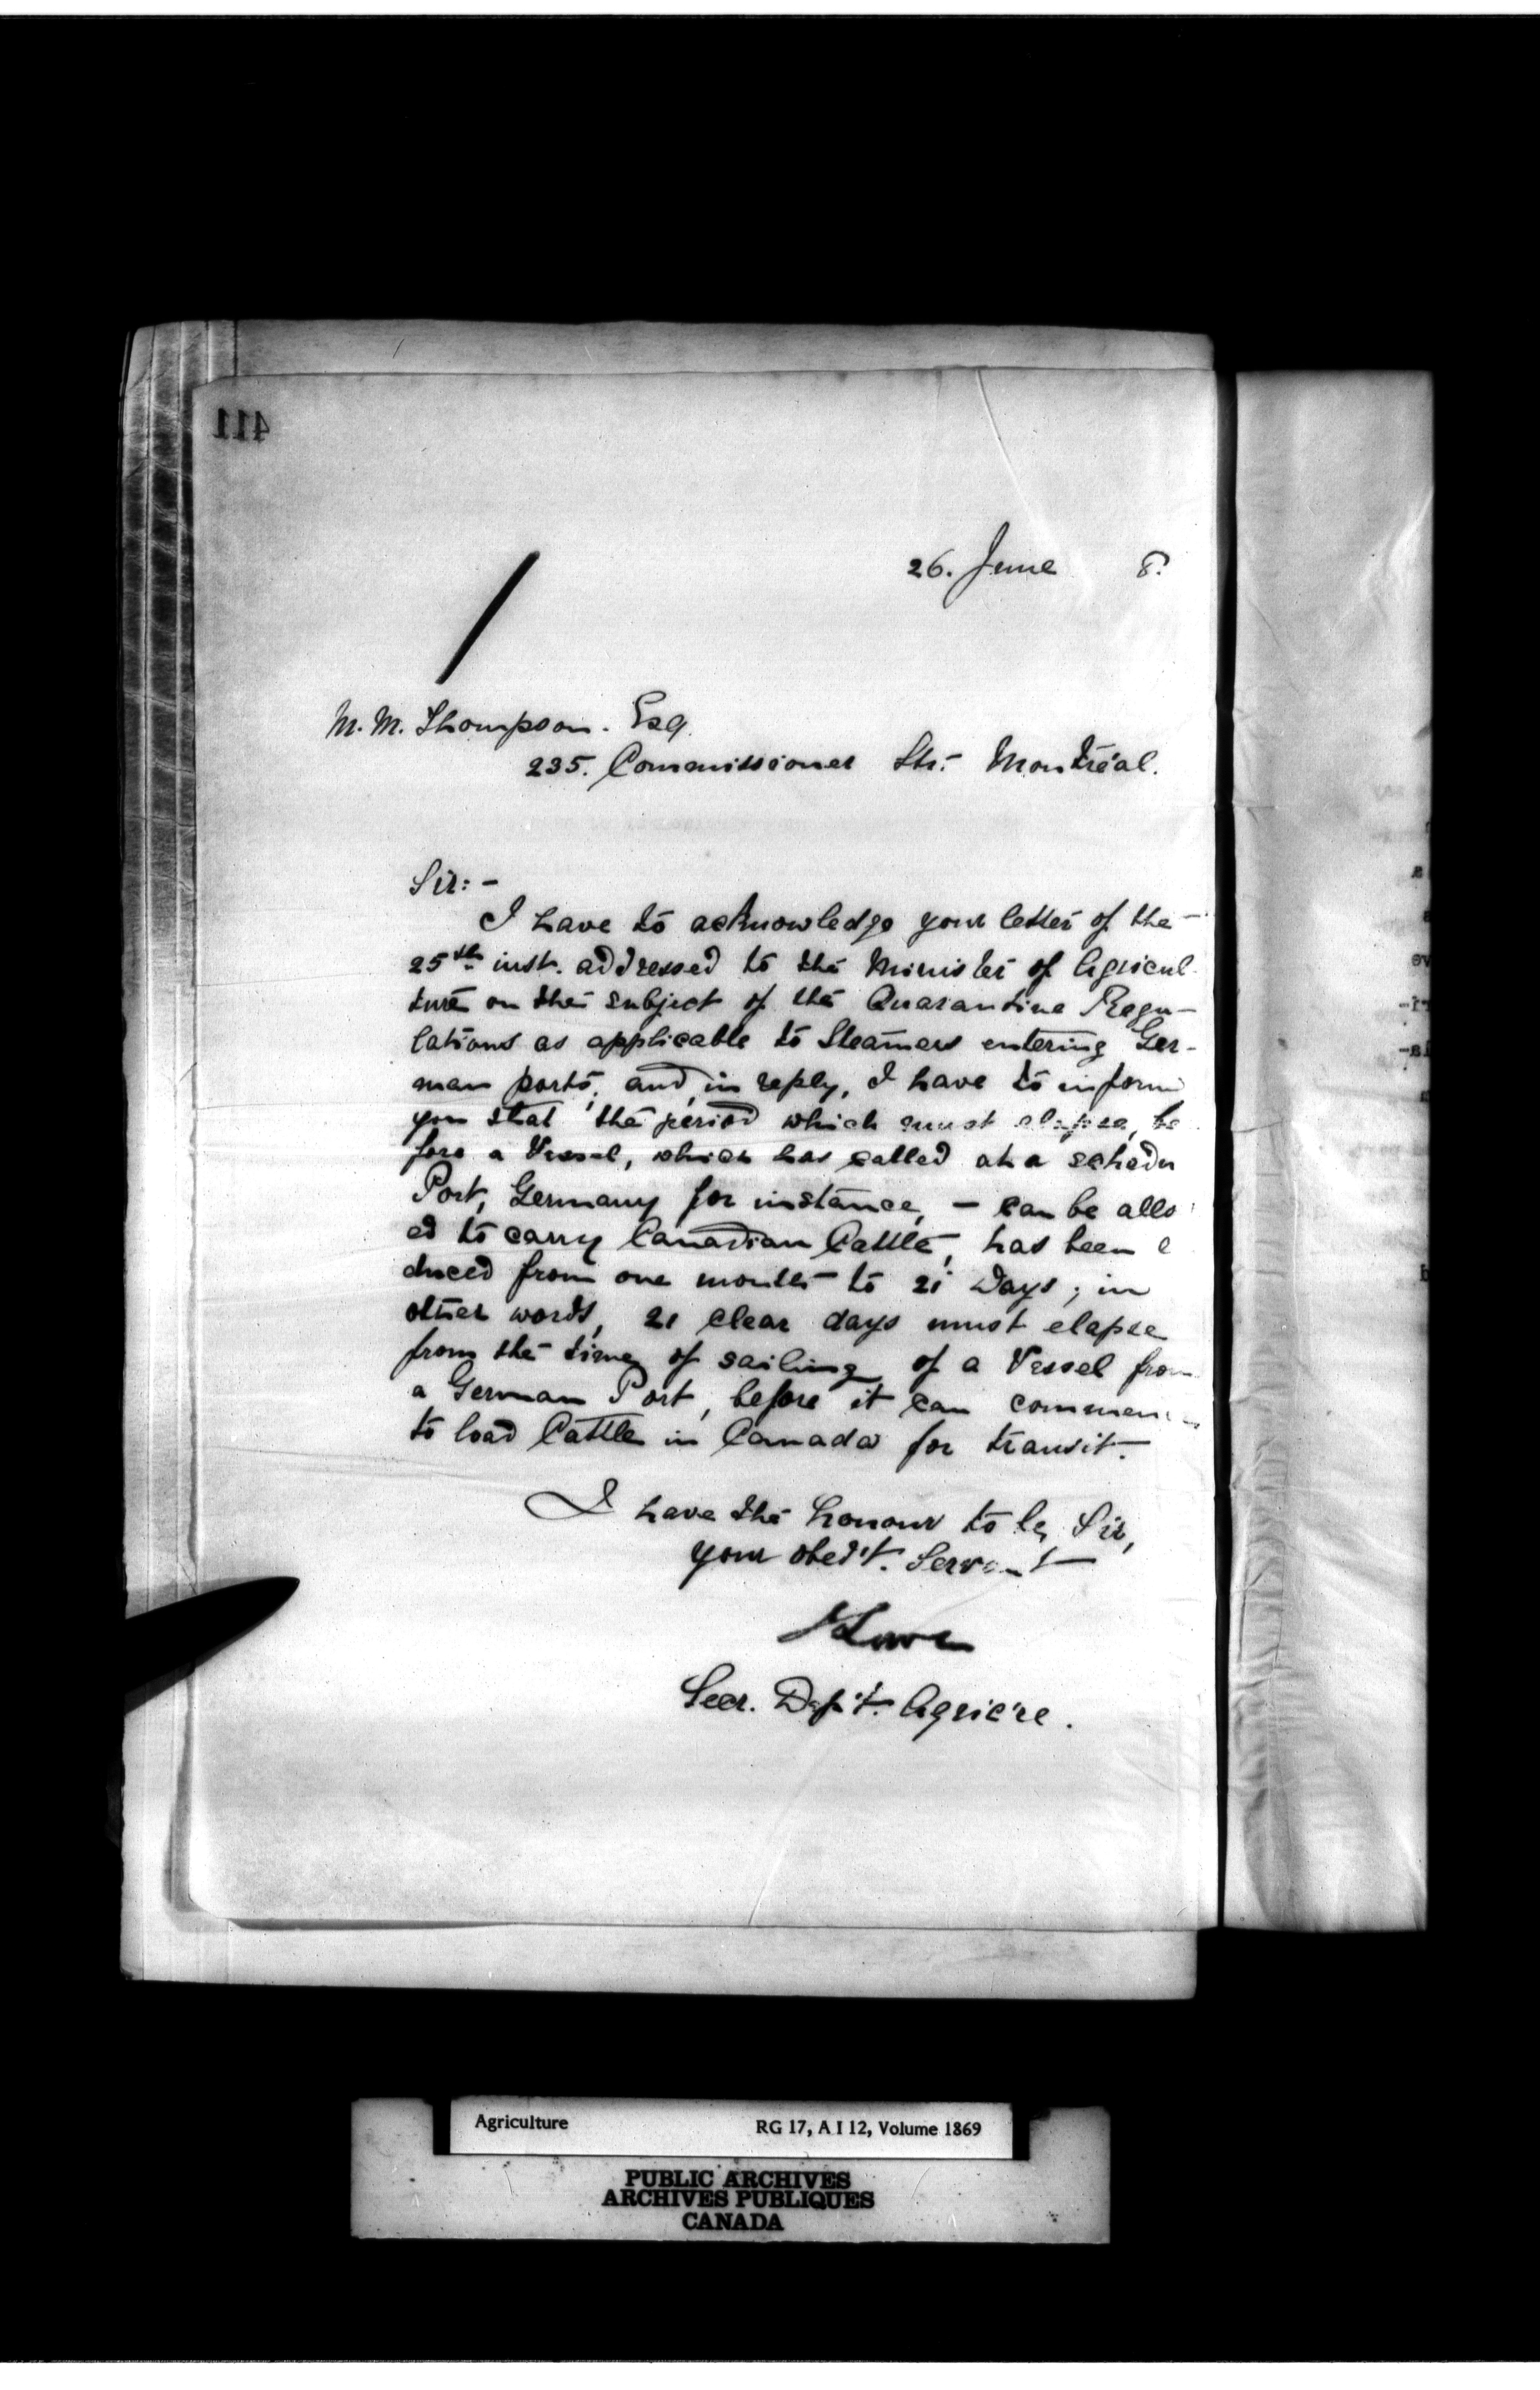 411
26. June 8.
M. M. Thompson. Esq.
235. Commissioner Str. Montréal.
Sir: -
I have to acknowledge your letter of the
25th inst. addressed to the Minister of Agricul-
ture on the subject of the Quarantine Regu-
lations as applicable to Steamers entering Ger-
man ports, and, in reply, I have to inform
you that the period which must elapse, be
fore a Vessel, which has called at a schedu
Port, Germany for instance, - can be allo
ed to carry Canadian Cattle, has been e
duced from one month to 21 Days; in
other words, 21 clear days must elapse
from the time of sailing of a Vessel from
a German Port, before it can commence
to load Cattle in Canada for transit.
I have the honour to be, Sir,
your obed't. Servant
Lowe
Secr. Dep't. Agric're.
Agriculture RG 17, A I 12, Volume 1869
PUBLIC ARCHIVES
ARCHIVES PUBLIQUES
CANADA